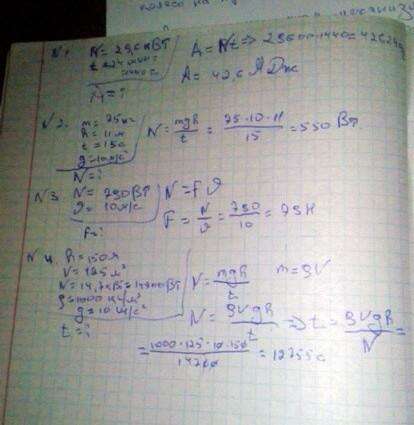 N 1. N = 29,6 кВт
t = 24 мин =
1440 с
A = ?
A = Nt => 29600·1440 =
A = 42,6 МДж
N 2. m = 75 кг
h = 11 м
t = 15 с
g = 10 м/с²
N = ?
N = mgh/t = 75·10·11/15 = 550 Вт
N 3. N = 790 Вт
υ = 10 м/с
F = ?
N = F υ
F = N/υ = 790/10 = 79 Н
N 4. h = 150 м
V = 125 м³
N = 14,7 кВт = 14700 Вт
ρ = 1000 кг/м³
g = 10 м/с²
t = ?
N = mgh/t m = ρV
N = ρVgh/t => t = ρVgh/N =
= 1000·125·10·150/14700 = 12755 с